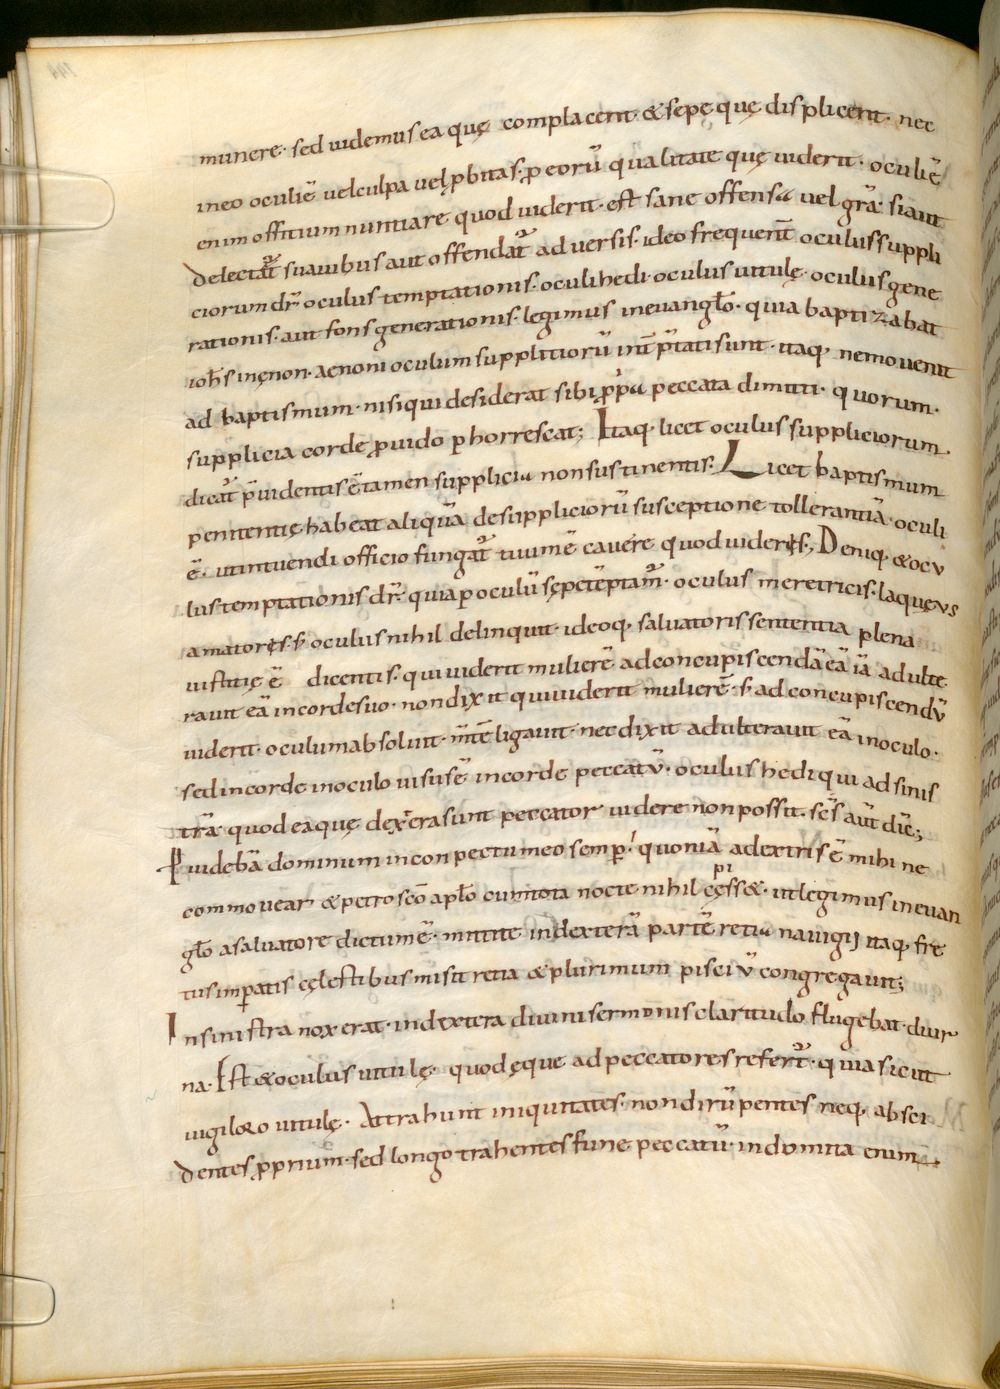 munere· sed uidemus ea quę complacent· & sepę quę displicent· nec
in eo oculi ē uel culpa uel ꝓbitas· ꝓ eorū qualitate quę uiderit· oculi ē
enim offitium nuntiare quod uiderit· est sane offensa uel grā· si aut
delectat̄ suauibus aut offendat̄ aduersis· ideo frequent̄ oculus suppli
ciorum dr̄ oculus temptationis· oculi hedi· oculus uitulę· oculus gene
rationis· aut fons generationis· legimus in euanglo· quia baptizabat
ioh̄s in ęnon· aenoni oculum supplitiorū int̄p̄tati sunt· itaq· nemo uenit
ad baptismum· nisi qui desiderat sibi ꝓp̄a peccata dimitti· quorum·
supplicia corde ꝓuido ꝑhorrescat; Itaq· licet oculus suppliciorum
dicat̄ p̄uidentis ē tamen supplicia non sustinentis· Licet baptismum
penitentię habeat aliquā de suppliciorū susceptione tollerantiā· oculi
ē· ut intuendi officio fungat̄ tuum ē cauere quod uideręs·; Deniq· & ocu
lus temptationis dr̄· quia ꝑ oculū sępe tēptam̄· oculus meretricis· laquęus
amatoręs· s· oculus nihil delinquit· ideoq· saluatoris sententia plena
iustitię ē dicentis· qui uiderit mulierē ad concupiscendā eā iā adulte
rauit eā in corde suo· non dixit qui uiderit mulierē· s· ad concupiscendū
uiderit· oculum absoluit· m̄tē ligauit· nec dixit adulterauit eā in oculo·
sed in corde in oculo uisus ē in corde peccatū· oculus hedi qui ad sinis
trā quod ea quę dex̄tera sunt peccator uidere non possit· sc̄s aūt dic̄;
Puidebā dominum in conpectu meo semꝑ· quoniā a dextris ē mihi ne
commouear & petro sc̄o aplo cum tota nocte nihil cępiss&· ut legimus in euan
glo a saluatore dictum ē· mittite in dexterā partē retia nauigij itaq· fre
tus imperatis cęlestibus misit retia & plurimum pisciū congregauit;
In sinistra nox erat· in dextera diuini sermonis claritudo fulgebat diur
na· Est & oculus uitulę· quod ęque ad peccatores refert̄· quia sicut
uigiloro uitulę· Attrahunt iniquitates· non dirūpentes neq· absci
dentes ꝓprium· sed longo trahentes fune peccatū· indomita enim